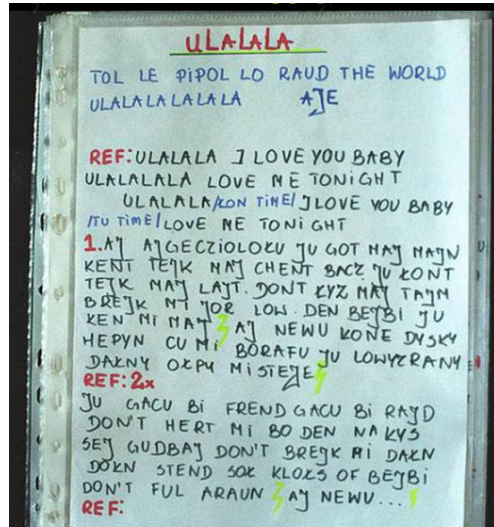 ULALALA
TOL LE PIPOL LO RAUD THE WORLD
ULALALALALALA AJE
REF: ULALALA I LOVE YOU BABY
ULALALALA LOVE ME TONIGHT
ULALALA /ŁON TIME/ I LOVE YOU BABY
/TU TIME/ LOVE ME TONIGHT
1. AJ AJGECZIOLOŁU JU GOT MAJ MAJN
KENT TEJK MAJ CHENT BACZ JU ŁONT
TEJK MAJ LAJT. DONT ŁYZ MAJ TAJM
BREJK MI JOR LOW. DEN BEJBI JU
KEN MI MAJ AJ NEWU KONE DYSKY
HEPYN CU MI BORAFU JU LOWYZRANY
DAŁNY OŁPU MISTEJE
REF: 2x
JU GACU BI FREND GACU BI RAJD
DON'T HERT MI BO DEN NA KYS
SEJ GUDBAJ DON'T BREJK MI DAŁN
DOŁN STEND SOŁ KLOŁS OF BEJBI
DON'T FUL ARAUN AJ NEWU...
REF: